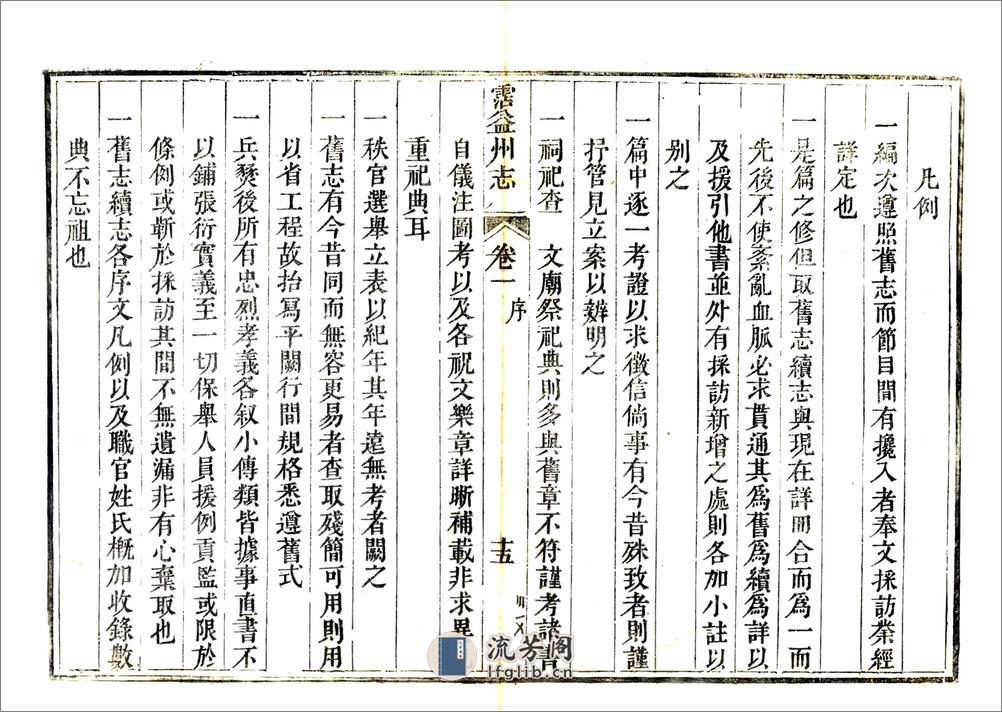 凡例
一編次遵照舊志而節目間有攙入者奉文採訪業經
詳定也
一是篇之修但取舊志續志與現在詳冊合而為一而
先後不使紊亂血脈必求貫通其為舊為續為詳以
及援引他書並外有採訪新增之處則各加小註以
別之
一篇中逐一考證以求徵信倘事有今昔殊致者則謹
抒管見立案以辨明之
一祠祀查 文廟祭祀典則多與舊章不符謹考諸書
霑益州志 卷一 序 十五
自儀注圖考以及各祝文樂章詳晰補載非求異
重祀典耳
一秩官選舉立表以紀年其年遠無考者闕之
一舊志有今昔同而無容更易者查取殘簡可用則用
以省工程故抬寫平闕行間規格悉遵舊式
一兵燹後所有忠烈孝義各叙小傳類皆據事直書不
以鋪張衍實義至一切保舉人員援例貢監或限於
條例或靳於採訪其間不無遺漏非有心棄取也
一舊志續志各序文凡例以及職官姓氏概加收錄數
典不忘祖也
流芳阁
lfglib.cn